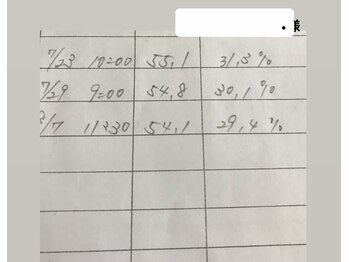 様
7/23 10=00 55,1 31,3%
7/29 9=00 54,8 30,1%
8/7 11=30 54,1 29,4%